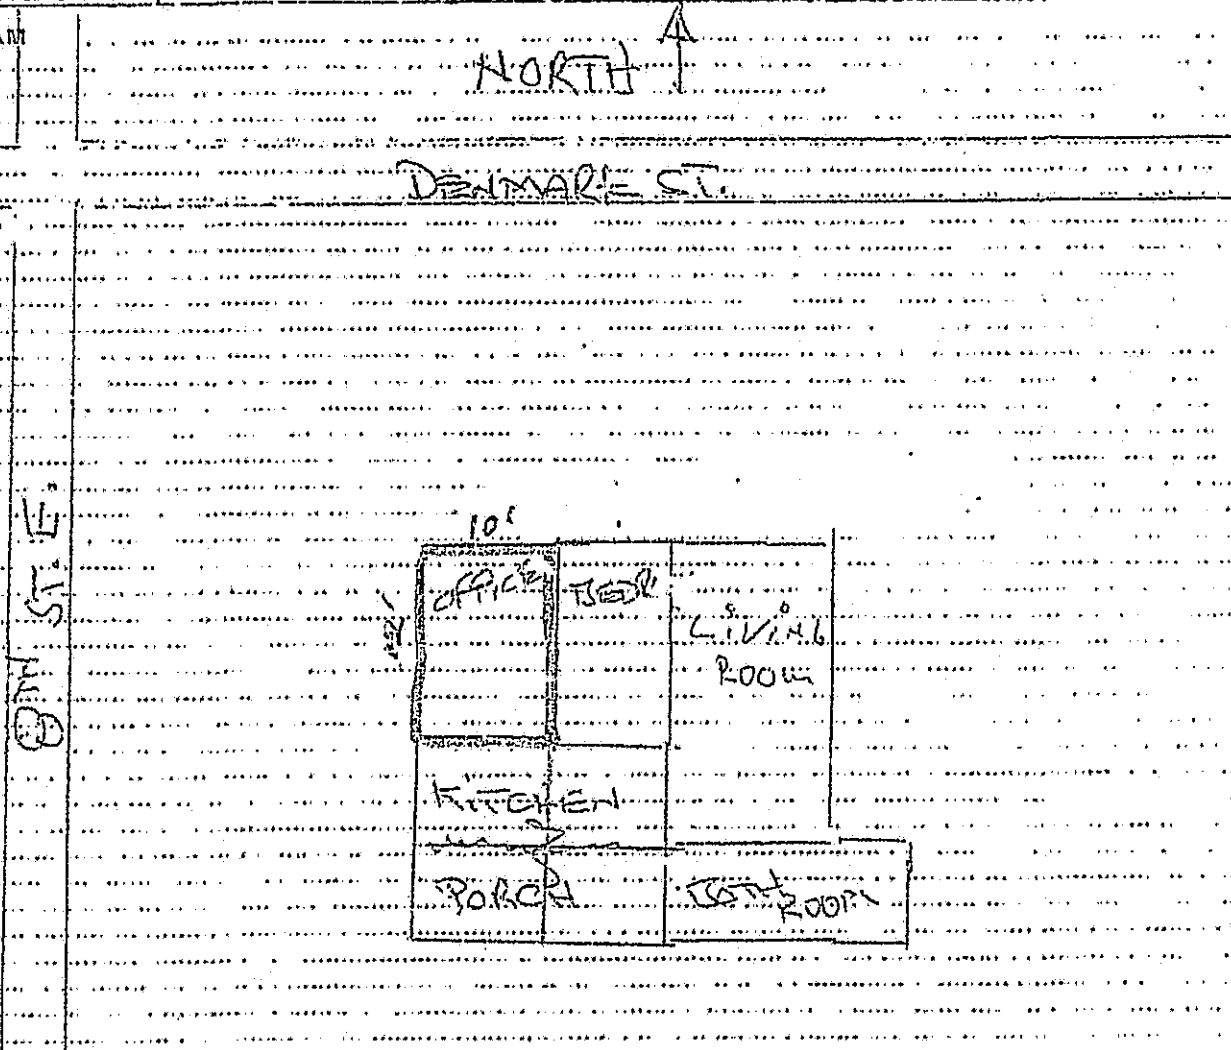 NORTH
DENMARK ST.
8TH ST. E.
10'
OFFICE
BEDR.
LIVING
ROOM
KITCHEN
PORCH
BATH
ROOM